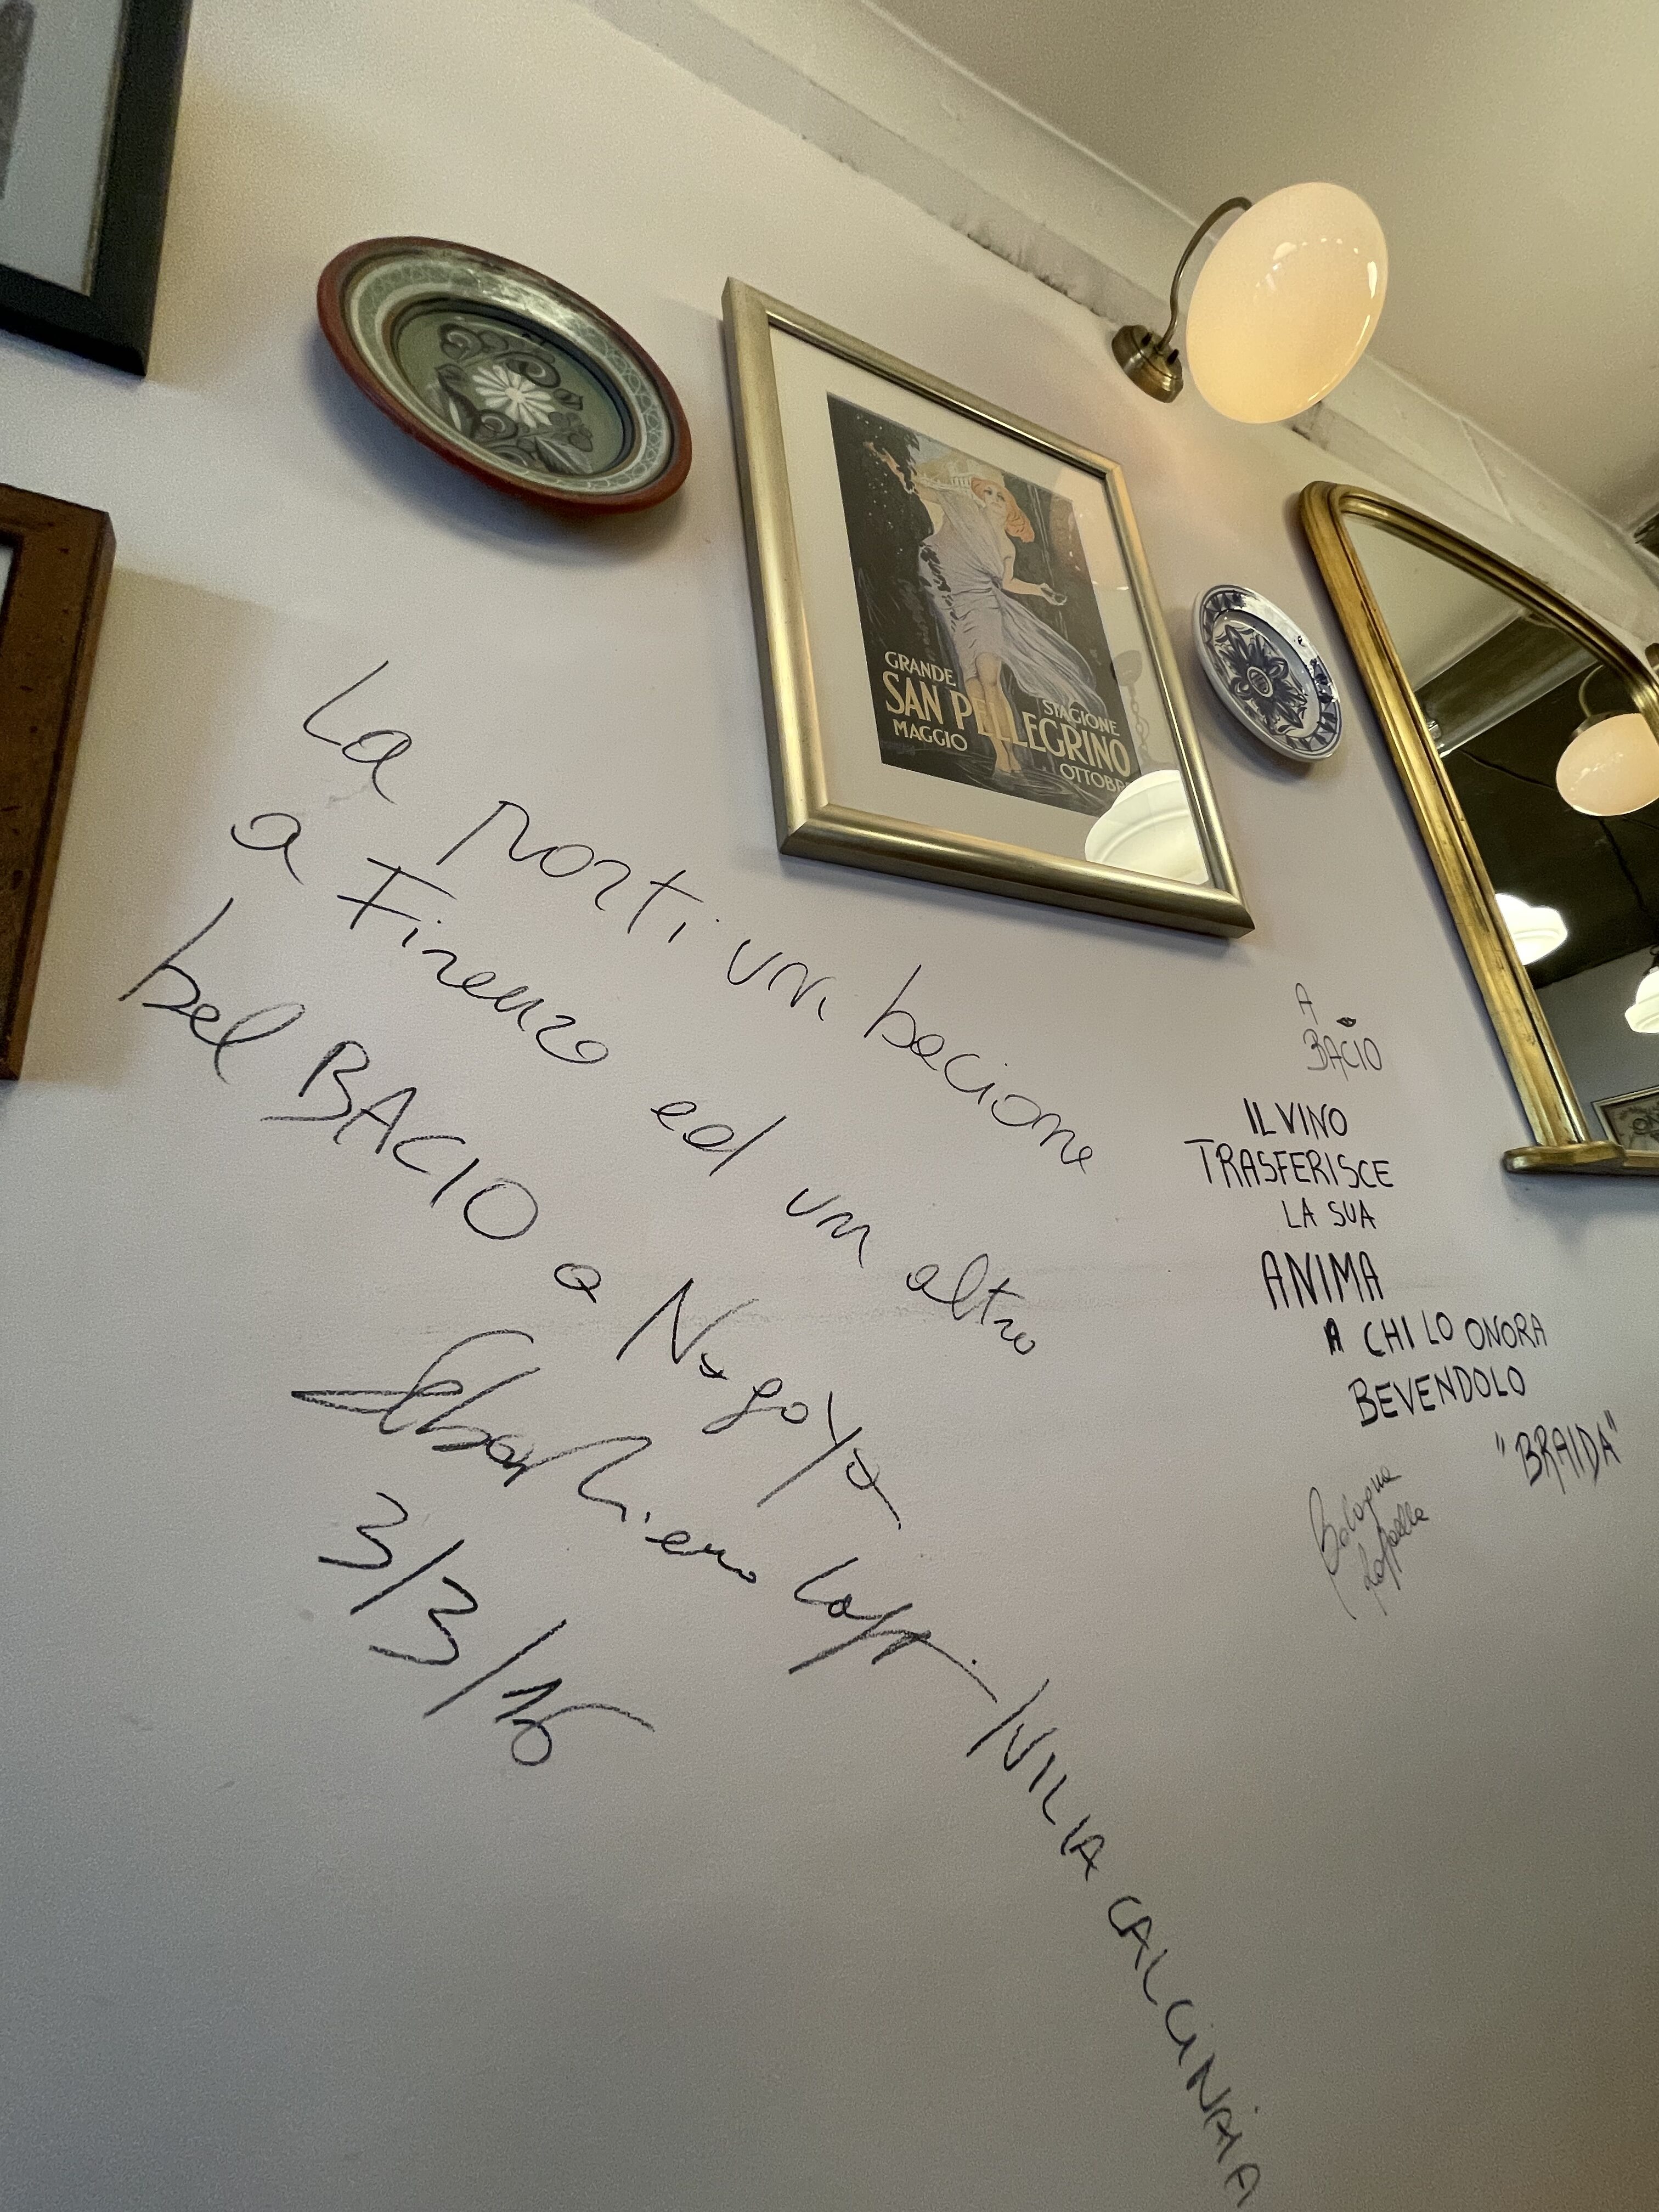 GRANDE
STAGIONE
SAN PELLEGRINO
MAGGIO
OTTOBR
La porti un bacione
a Firenze ed un altro
bel BACIO a Nagoya
Lapi / VILLA CALCINAIA
3/3/16
A
BACIO
IL VINO
TRASFERISCE
LA SUA
ANIMA
A CHI LO ONORA
BEVENDOLO
"BRAIDA"
Bologna
Raffaella